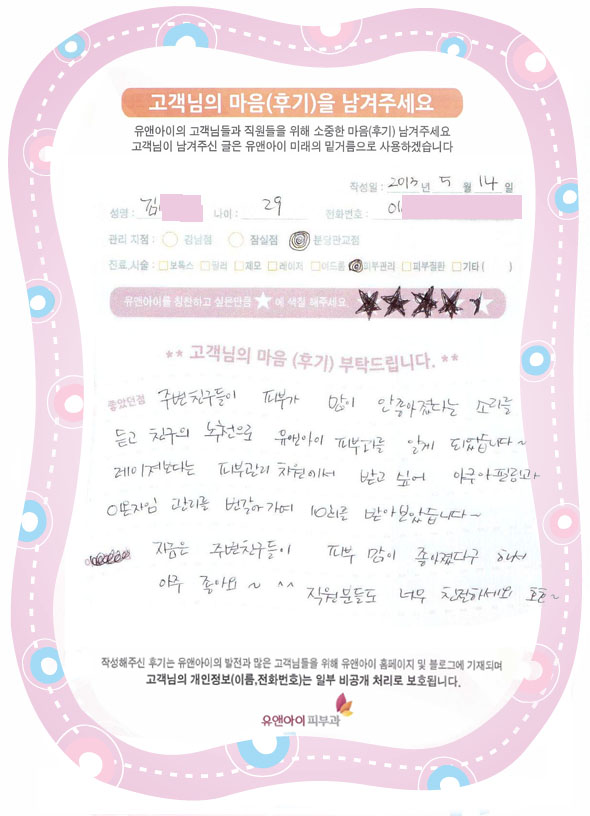 고객님의 마음(후기)을 남겨주세요
유앤아이의 고객님들과 직원들을 위해 소중한 마음(후기) 남겨주세요
고객님이 남겨주신 글은 유앤아이 미래의 밑거름으로 사용하겠습니다
작성일 : 2013 년 5 월 14 일
성명 : 김 나이 : 29 전화번호 : 01
관리 지점 : 강남점 잠실점 분당판교점
진료,시술 : 보톡스 필러 제모 레이저 여드름 피부관리 피부질환 기타 ( )
유앤아이를 칭찬하고 싶은만큼 ★에 색칠 해주세요
** 고객님의 마음 (후기) 부탁드립니다. **
좋았던점 주변친구들이 피부가 많이 안좋아졌다는 소리를
듣고 친구의 추천으로 유앤아이 피부과를 알게 되었습니다~
레이져보다는 피부관리 차원에서 받고 싶어 아쿠아필링과
산소자임 관리를 번갈아가며 10회를 받아보았습니다~
지금은 주변친구들이 피부 많이 좋아졌다구 해서
아주 좋아요~ ^^ 직원분들도 너무 친절하세요 호호~
작성해주신 후기는 유앤아이의 발전과 많은 고객님들을 위해 유앤아이 홈페이지 및 블로그에 기재되며
고객님의 개인정보(이름,전화번호)는 일부 비공개 처리로 보호됩니다.
유앤아이피부과